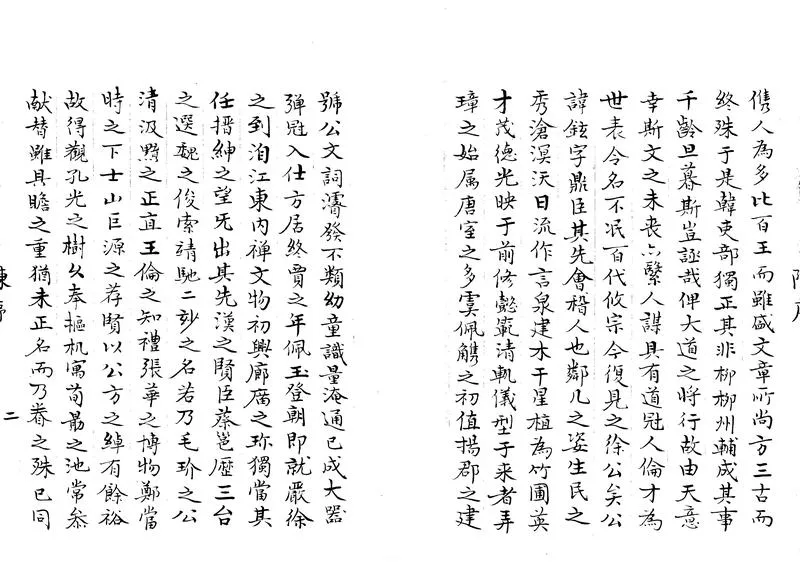 儁人為多比百王而雖盛文章所尚方三古而
終殊于是韓吏部獨正其非柳柳州輔成其事
千齡旦暮斯豈誣哉俾大道之將行故由天意
幸斯文之未丧亦繫人謀具有道冠人倫才為
世表令名不泯百代攸宗今復見之徐公矣公
諱鉉字鼎臣其先會稽人也鄰几之姿生民之
秀滄溟沃日流作言泉建木干星植為竹圃英
才茂德光映于前修懿清軌儀型于来者弄
璋之始属唐室之多虞佩觹之初值揚郡之建
號公文詞濬發不類幼童識量淹通已成大器
弹冠入仕方居終賈之年佩玉登朝即就嚴徐
之列洎江東内禅文物初興廊廡之珎獨當其
任搢紳之望旡出其先漢之賢臣蔡邕歷三台
之選魏之俊索靖馳二妙之名若乃毛玠之公
清汲黯之正直王倫之知禮張華之博物鄭當
時之下士山巨源之荐賢以公方之綽有餘裕
故得觀孔光之樹久奉樞机寓荀勗之池常叅
献替雖具瞻之重猶未正名而乃眷之殊已同
二